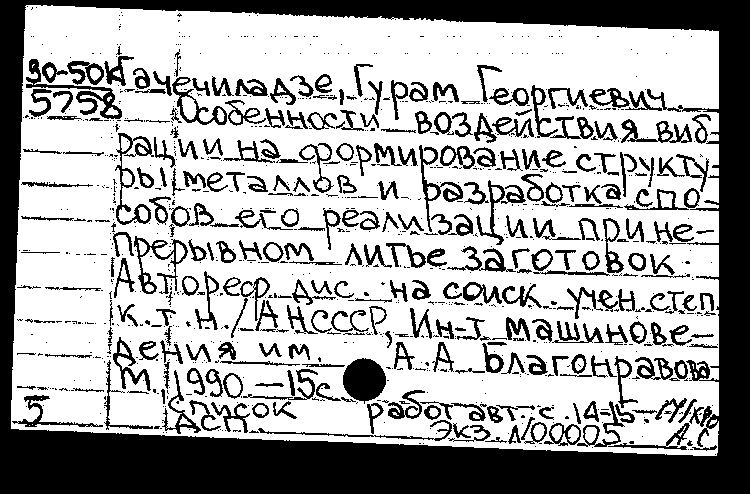 90-50К Гачечиладзе, Гурам Георгиевич.
5758 Особенности воздействия виб-
рации на формирование структу-
ры металлов и разработка спо-
собов его реализации при не-
прерывном литье заготовок.
Автореф. дис. на соиск. учен. степ.
к.т.н. / АН СССР, Ин-т машинове-
дения им. А.А. Благонравова
М., 1990 – 15с
5 Список работ авт.: с. 14-15.
ДСП. Экз. N00005. А.С